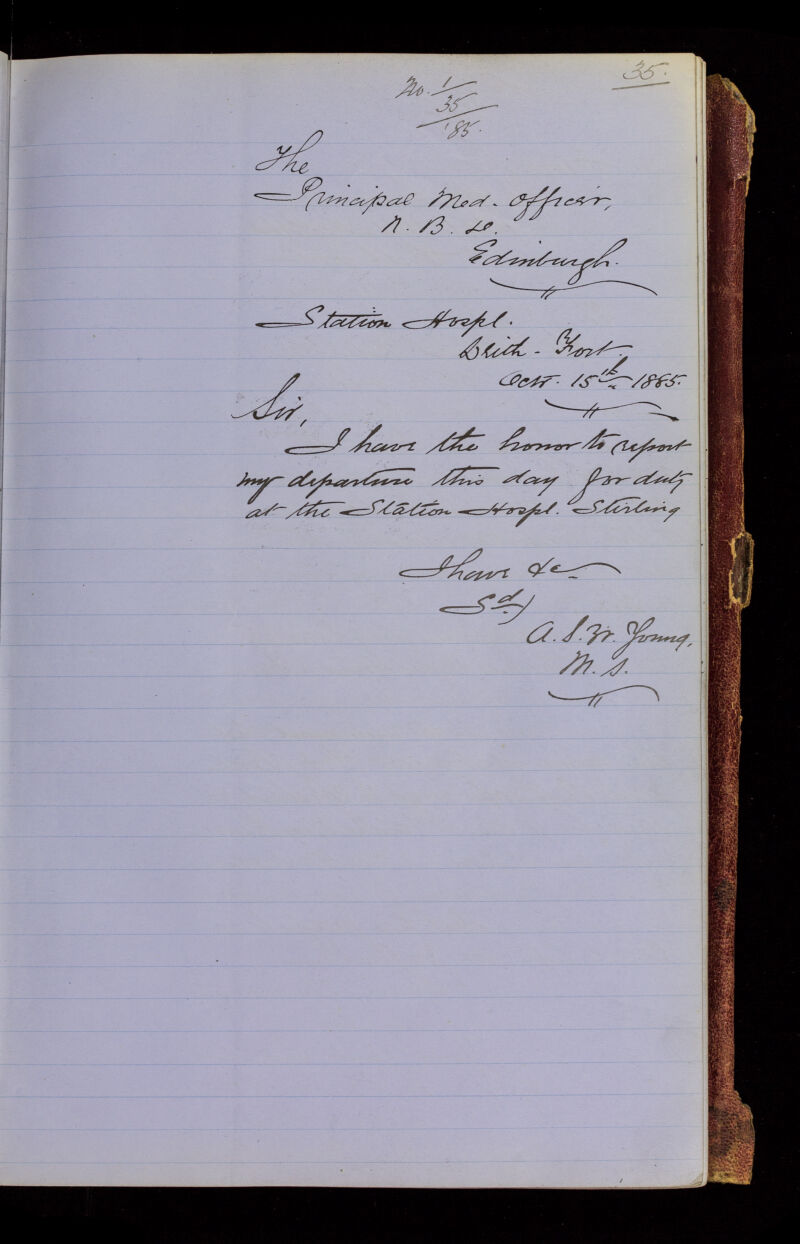 35.
No. 1/
35/
'85.
The
Principal Med. Officer,
N. B. D.
Edinburgh.
Station Hospl.
Leith - Fort.
Octr. 15th 1885.
Sir,
I have the honor to report
my departure this day for duty
at the Station Hospl. Stirling
I have &c
Sd)
A. S. W. Young,
M. S.